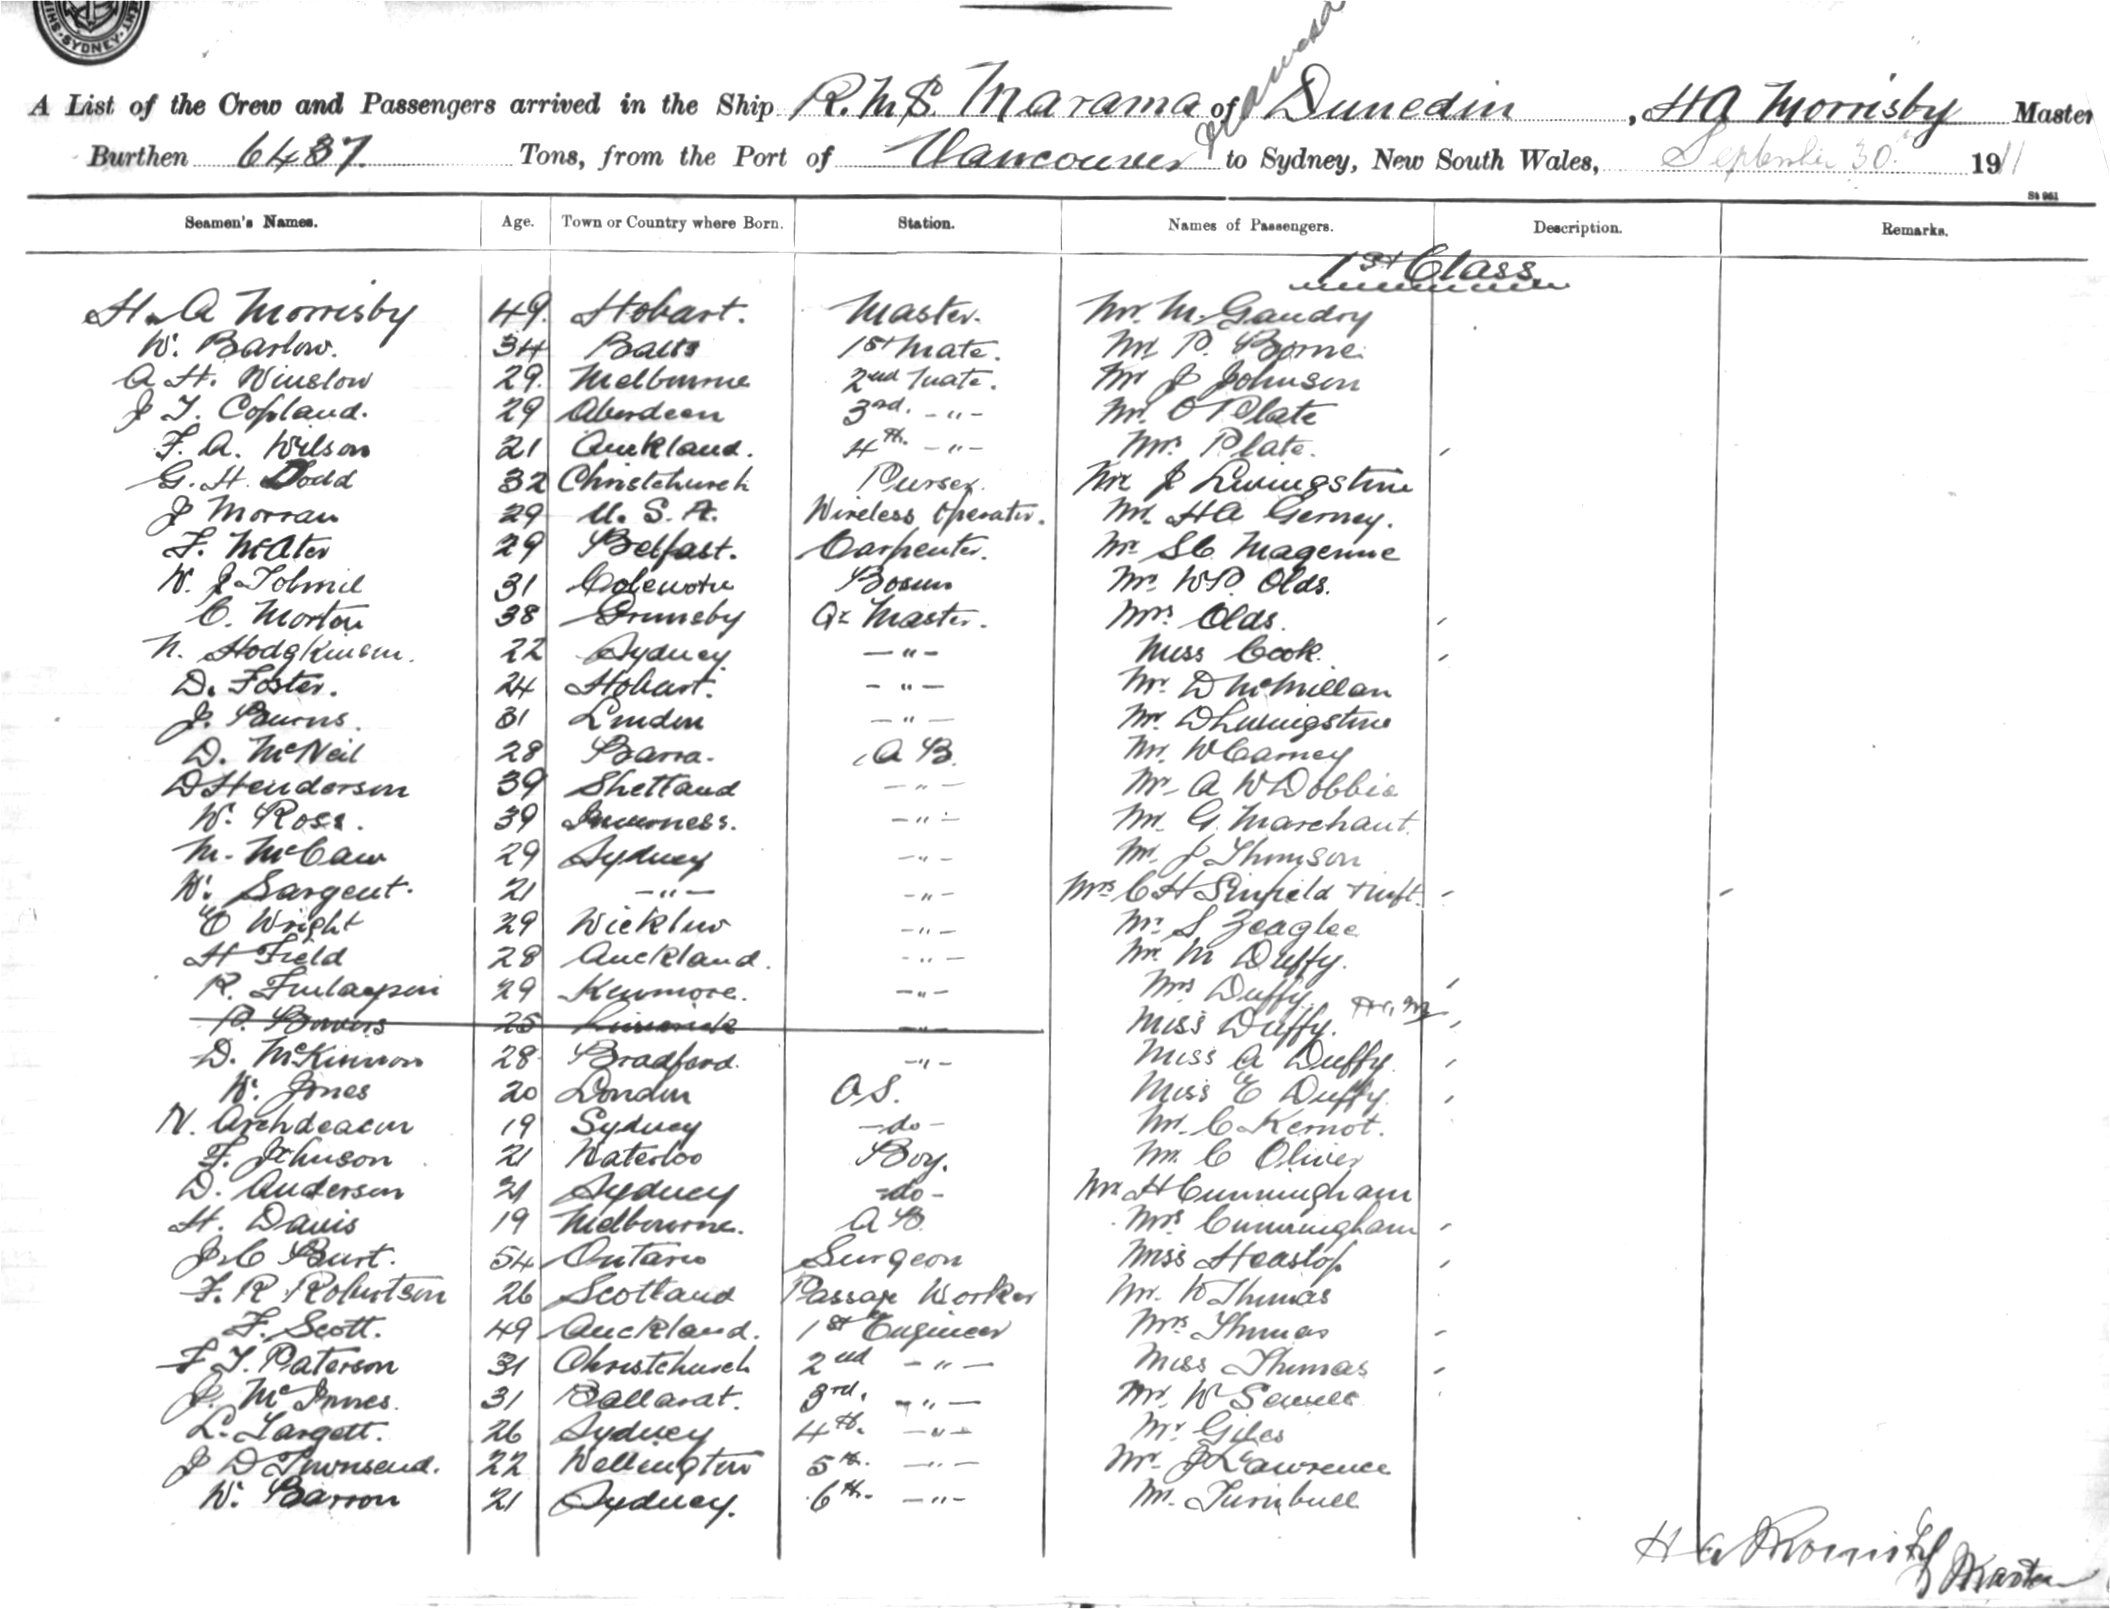 SYDNEY
A List of the Crew and Passengers arrived in the Ship R.M.S. Marama of Dunedin, HA Morrisby Master
Burthen 6437. Tons, from the Port of Vancouver to Sydney, New South Wales, September 30 1911
St 961
Seamen's Names. Age. Town or Country where Born. Station. Names of Passengers. Description. Remarks.
1st Class
H. A Morrisby 49. Hobart. Master. Mr. M. Gaudry
W. Barlow. 34 1st Mate. Mr P.
A H. Winslow 29. Melbourne 2nd Mate. Mr J Johnson
J T. Copland. 29 Aberdeen 3rd. -"- Mr. O Plate
F. A. Wilson 21 Auckland. 4th. -"- Mrs Plate.
G. H. Dodd 32 Christchurch Purser. Mr J Livingstone
J Morran 29 U. S. A. Wireless Operator. Mr. HA Gerney.
F. McAter 29 Belfast. Carpenter. Mr
W. J 31 Bosun Mr. W.P. Olds.
C. Morton 38 Grimsby Qr Master. Mrs Olds.
N. Hodgkinson. 22 Sydney. -"- Miss Cook.
D. Foster. 24 Hobart. -"- Mr. D McMillan
J. Burns. 31 London -"- Mr. D Livingstone
D. McNeil 28 Barra. A B. Mr. W Carney
D Henderson 39 Shetland -"- Mr. A W Dobbie
W. Ross. 39 Inverness. -"- Mr. G. Marchant.
M. McCaw 29 Sydney -"- Mr. J Thomson
W. Sargent. 21 -"- -"- Mrs C H Sinfield + inft.
E Wright 29 Wicklow -"- Mr. S
H Field 28 Auckland. -"- Mr. M Duffy.
R. Finlayson 29 Kenmore. -"- Mrs Duffy.
P. 25 Limerick -"- Miss Duffy.
D. McKinnon 28 Bradford. -"- Miss A Duffy.
W. Jones 20 London O S. Miss E Duffy.
N. Archdeacon 19 Sydney -do- Mr. C Kernot.
F. Johnson 21 Waterloo Boy. Mr. C Oliver
D. Anderson 21 Sydney -do- Mr H Cunningham
H. Davis 19 Melbourne. A B. Mrs Cunningham
J. C Burt. 54 Ontario Surgeon Miss Heaslop
F. R Robertson 26 Scotland Passage Worker Mr. W Thomas
F. Scott. 49 Auckland. 1st Engineer Mrs Thomas
F T. Paterson 31 Christchurch 2nd -"- Miss Thomas
J. McInnes. 31 Ballarat. 3rd. -"- Mr. W
L. Targett. 26 Sydney 4th. -"- Mr Giles
J D Townsend. 22 Wellington 5th. -"- Mr. J Lawrence
W. Barron 21 Sydney. 6th. -"- Mr. Turnbull
H A Morrisby Master